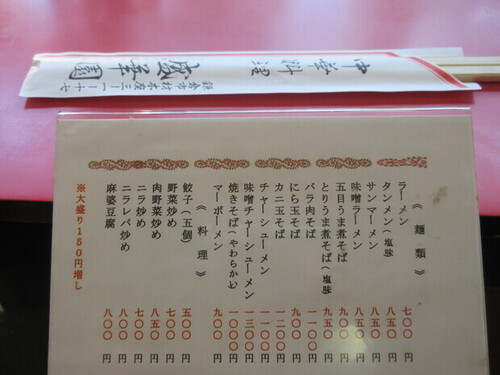 中華料理
盛華園
鎌倉市材木座三ー一ー十七
《麺類》
ラーメン 七〇〇円
タンメン(塩味 八五〇円
サンマーメン 八五〇円
味噌ラーメン 八五〇円
五目うま煮そば 九五〇円
とりうま煮そば(塩味 九五〇円
バラ肉そば 一一〇〇円
にら玉そば 九〇〇円
カニ玉そば 一二〇〇円
チャーシューメン 一一〇〇円
味噌チャーシューメン 一三〇〇円
焼きそば(やわらかい) 一〇〇〇円
マーボーメン 九〇〇円
《料理》
餃子(五個) 五〇〇円
野菜炒め 七〇〇円
肉野菜炒め 八五〇円
ニラ炒め 七〇〇円
ニラレバ炒め 八〇〇円
麻婆豆腐 八〇〇円
※大盛り150円増し